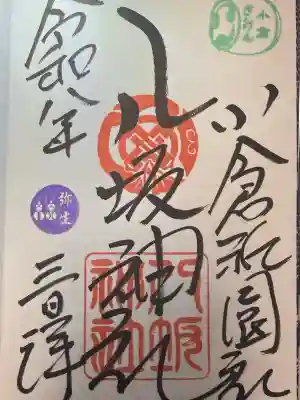 小倉
ぎおん
小倉祇園社
八坂神社
八坂
神社
令和八年
弥生
三日拝